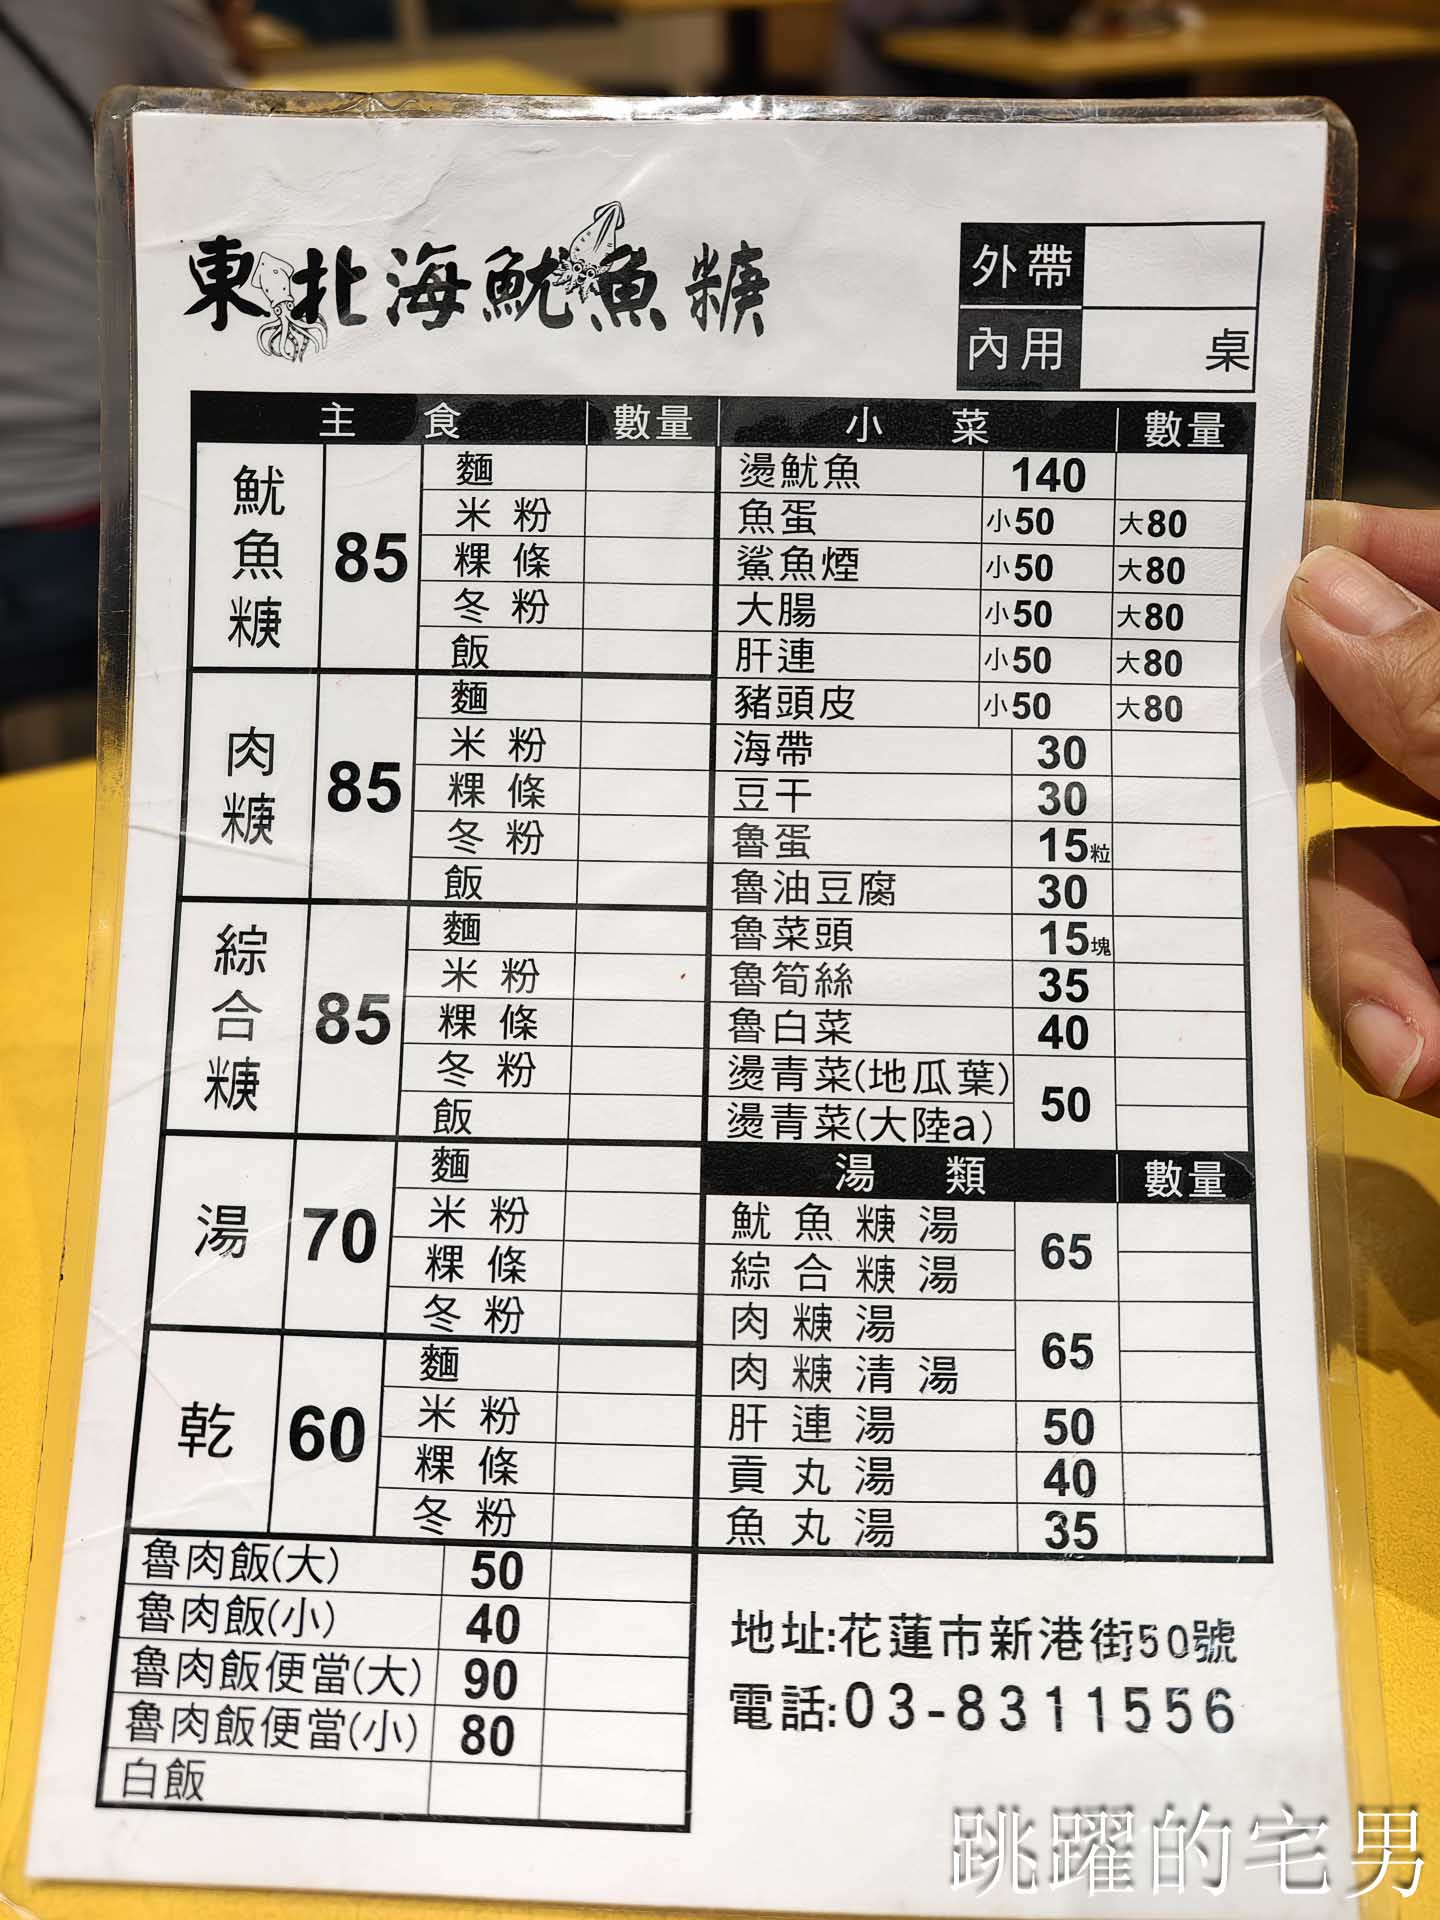 東北海魷魚焿
外帶
內用 桌
主食 數量
魷魚焿 85
麵
米粉
粿條
冬粉
飯
肉焿 85
麵
米粉
粿條
冬粉
飯
綜合焿 85
麵
米粉
粿條
冬粉
飯
湯 70
麵
米粉
粿條
冬粉
乾 60
麵
米粉
粿條
冬粉
魯肉飯(大) 50
魯肉飯(小) 40
魯肉飯便當(大) 90
魯肉飯便當(小) 80
白飯
小菜 數量
燙魷魚 140
魚蛋 小50 大80
鯊魚煙 小50 大80
大腸 小50 大80
肝連 小50 大80
豬頭皮 小50 大80
海帶 30
豆干 30
魯蛋 15粒
魯油豆腐 30
魯菜頭 15塊
魯筍絲 35
魯白菜 40
燙青菜(地瓜葉) 50
燙青菜(大陸a)
湯類 數量
魷魚焿湯 65
綜合焿湯
肉焿湯 65
肉焿清湯
肝連湯 50
貢丸湯 40
魚丸湯 35
地址:花蓮市新港街50號
電話:03-8311556
跳躍的宅男